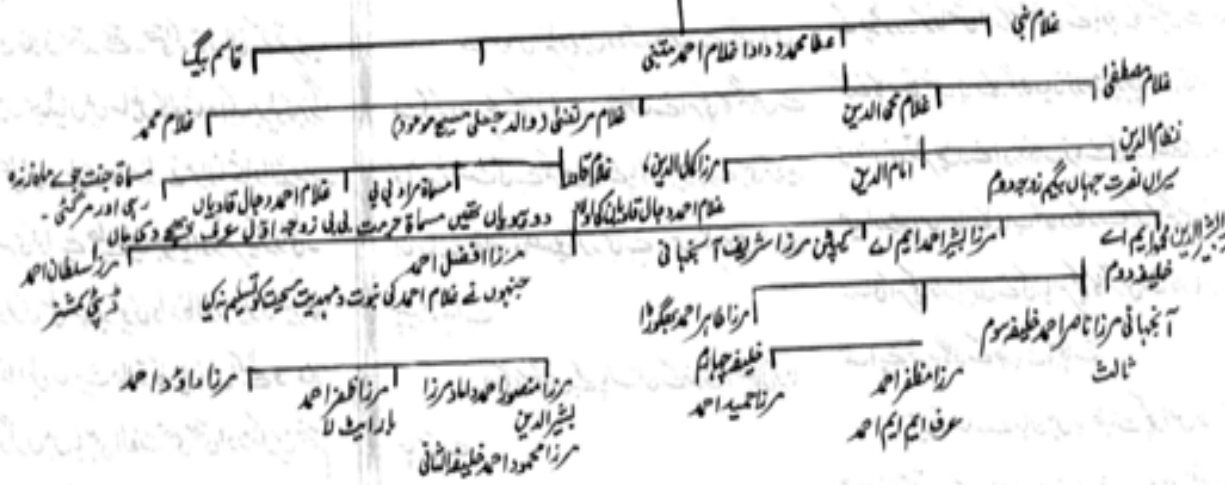 غلام نبی
عطا محمد (دادا غلام احمد متنبی
قاسم بیگ
غلام مصطفیٰ
غلام محی الدین
غلام مرتضیٰ (والد جعلی مسیح موعود)
غلام محمد
نظام الدین
امام الدین
مرزا کمال الدین،
غلام قادر
مسماۃ مراد بی بی
غلام احمد دجال قادیاں
مسماۃ جنت جوے ماہ زندہ
رہی اور مر گئی۔
میراں نصرت جہاں بیگم زوجہ دوم
غلام احمد دجال قادیاں کی اولاد
دو بیویاں تھیں مسماۃ حرمت بی بی زوجہ اوّل عرف پھجے دی ماں
بشیر الدین محمود ایم اے
خلیفہ دوم
مرزا بشیر احمد ایم اے
کیپٹن مرزا شریف آنجہانی
مرزا افضل احمد
جنہوں نے غلام احمد کی نبوت و مہدیت مسیحیت کو تسلیم نہ کیا
مرزا سلطان احمد
ڈپٹی کمشنر
آنجہانی مرزا ناصر احمد خلیفہ سوم
ثالث
مرزا طاہر احمد بھگوڑا
خلیفہ چہارم
مرزا مظفر احمد
عرف ایم ایم احمد
مرزا حمید احمد
مرزا منصور احمد داماد مرزا
بشیر الدین
مرزا محمود احمد خلیفہ الثانی
مرزا ظفر احمد
بار ایٹ لا
مرزا داؤد احمد